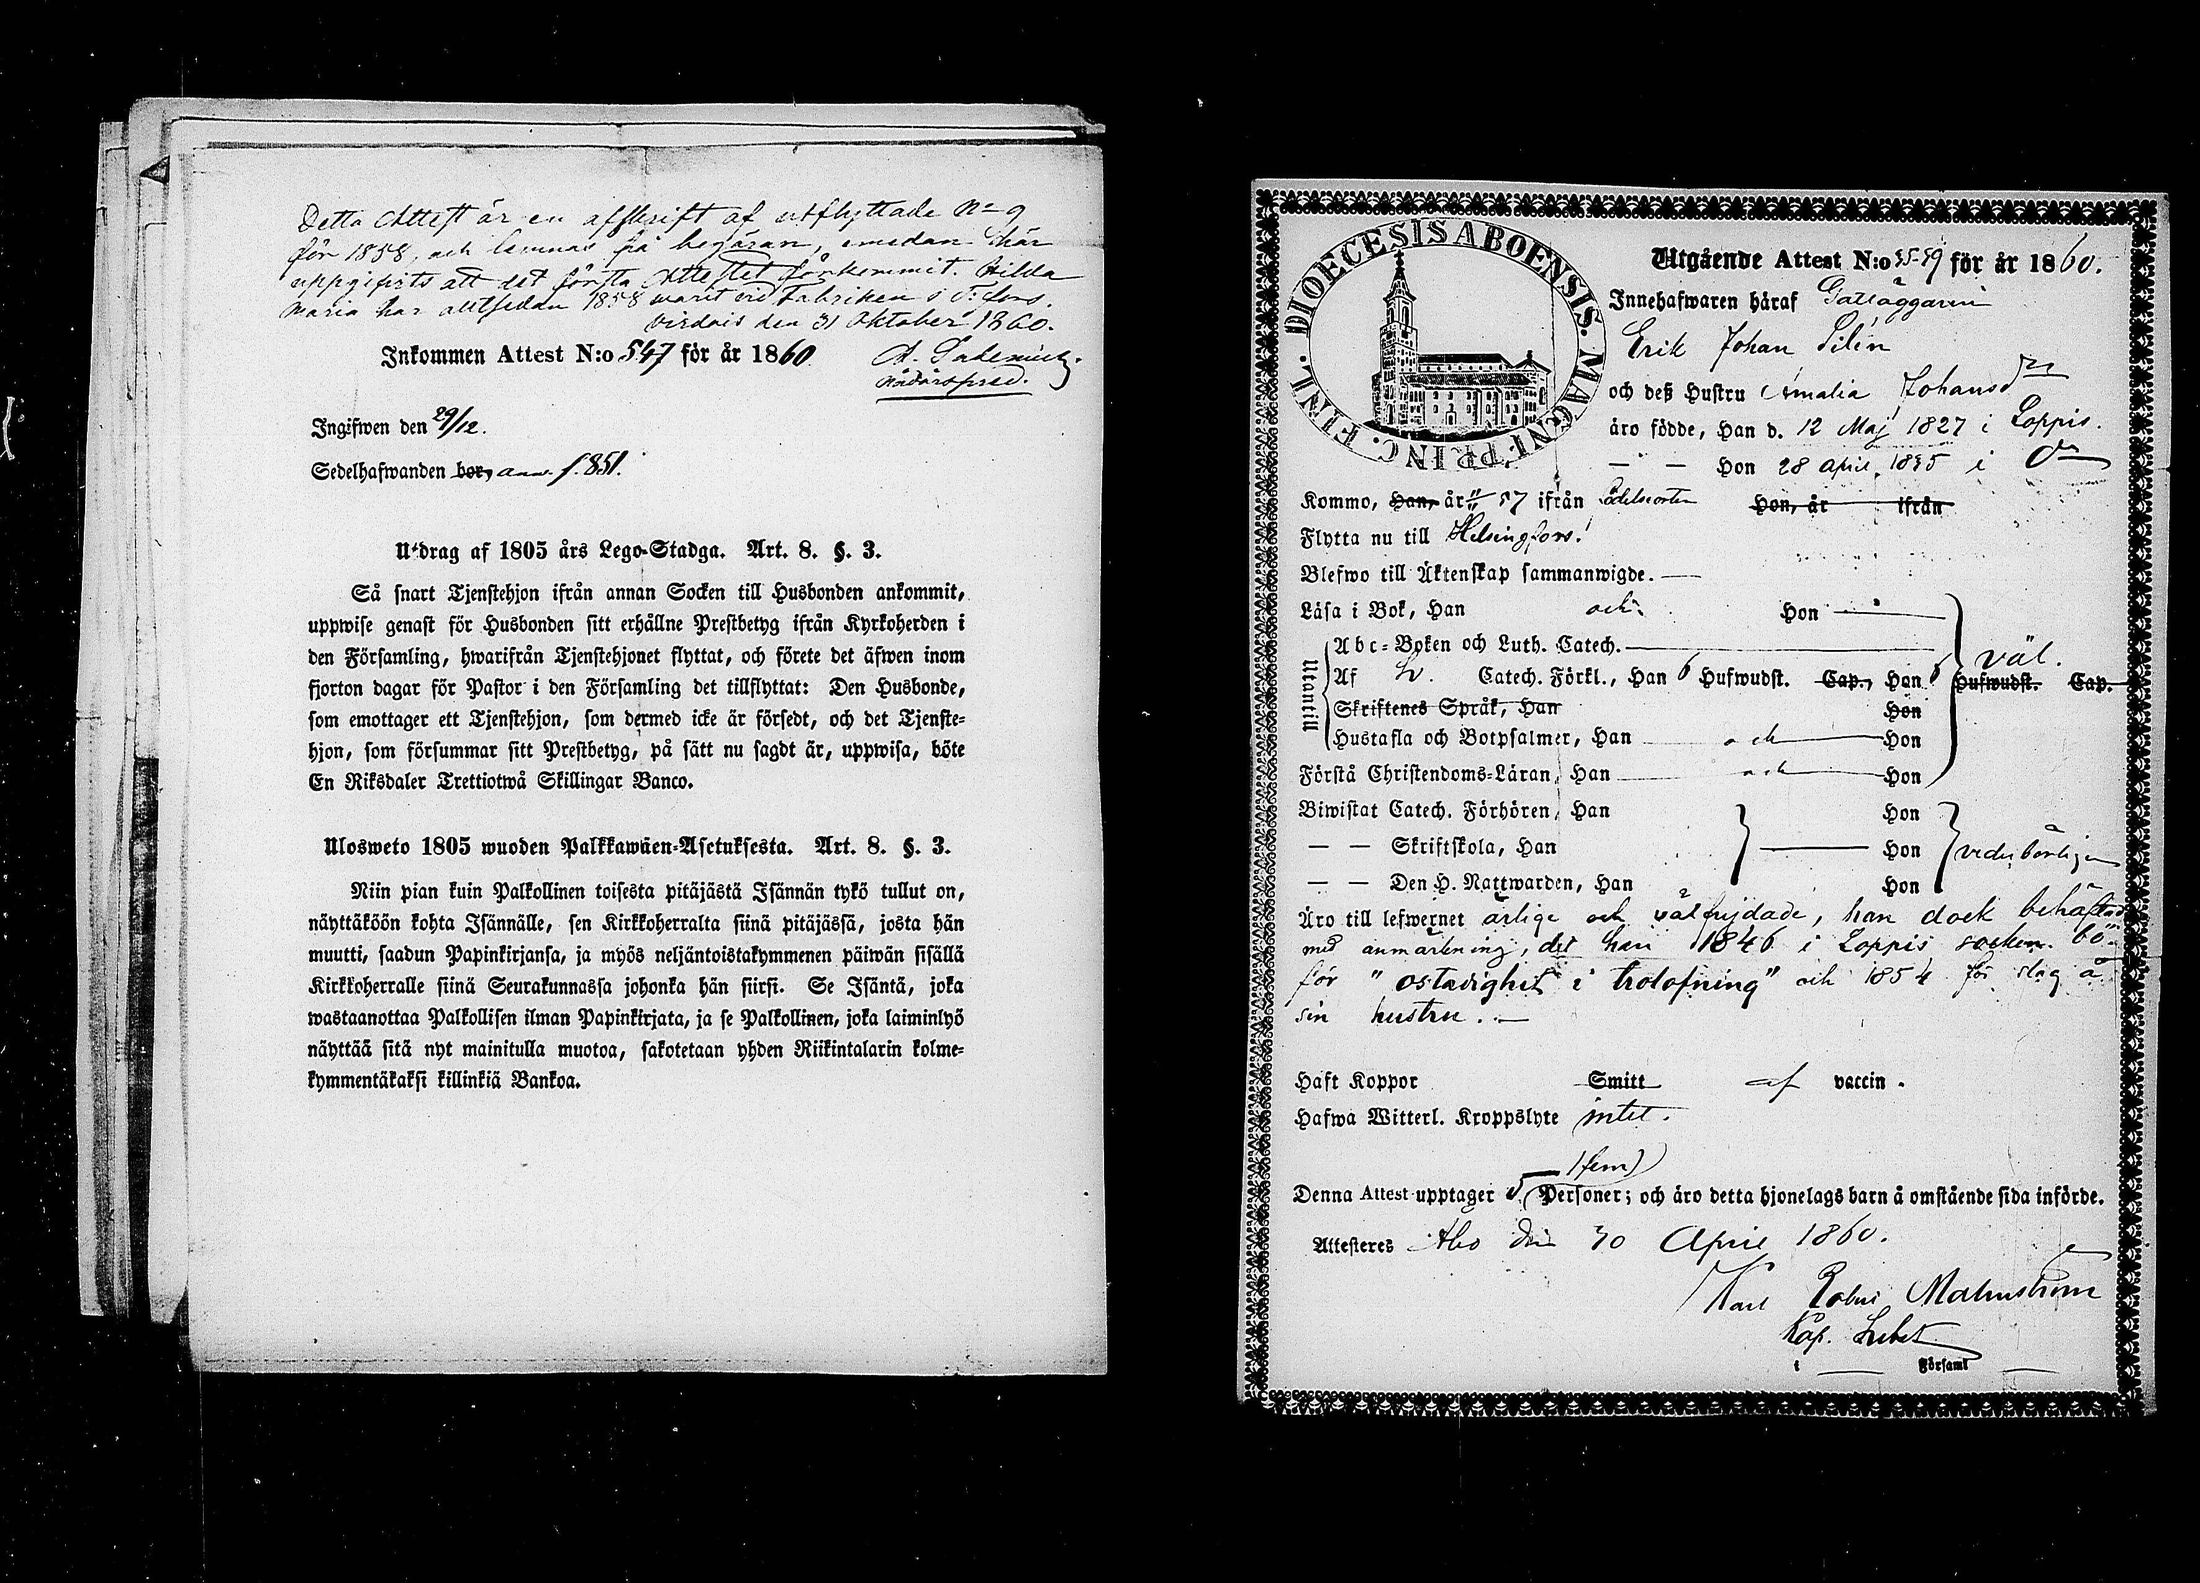 Detta Attest är en affskrift af utflyttade No 9
för 1858, och lemnas på begäran, emedan här
uppgifvits att det första Attestet förkommit. Hilda
Maria har alltsedan 1858 warit vid Fabriken i T:fors.
Virdois den 31 Oktober 1860.
Inkommen Attest N:o 547 för år 1860.
A.
Ingifwen den 29/12.
Sedelhafwanden bor, ann. f. 851.
Utdrag af 1805 års Lego-Stadga. Art. 8. §. 3.
Så snart Tjenstehjon ifrån annan Socken till Husbonden ankommit,
uppwise genast för Husbonden sitt erhållne Prestbetyg ifrån Kyrkoherden i
den Församling, hwarifrån Tjenstehjonet flyttat, och förete det äfwen inom
fjorton dagar för Pastor i den Församling det tillflyttat: Den Husbonde,
som emottager ett Tjenstehjon, som dermed icke är försedt, och det Tjenste-
hjon, som försummar sitt Prestbetyg, på sätt nu sagdt är, uppwisa, böte
En Riksdaler Trettiotwå Skillingar Banco.
Ulosweto 1805 wuoden Palkkawäen-Asetuksesta. Art. 8. §. 3.
Niin pian kuin Palkollinen toisesta pitäjästä Isännän tykö tullut on,
näyttäköön kohta Isännälle, sen Kirkkoherralta siinä pitäjässä, josta hän
muutti, saadun Papinkirjansa, ja myös neljäntoistakymmenen päiwän sisällä
Kirkkoherralle siinä Seurakunnassa johonka hän siirsi. Se Isäntä, joka
wastaanottaa Palkollisen ilman Papinkirjata, ja se Palkollinen, joka laiminlyö
näyttää sitä nyt mainitulla muotoa, sakotetaan yhden Riikintalarin kolme-
kymmentäkaksi killinkiä Bankoa.
DIOECESIS ABOENSIS. MAGNI PRINC. FINL.
Utgående Attest N:o 55-59 för år 1860.
Innehafwaren häraf Gatläggaren
Erik Johan Silén
och deß Hustru Amalia Johansdr
äro födde, Han d. 12 Maj 1827 i Loppis.
— — Hon 28 April 1835 i Do
Kommo, Han, år 57 ifrån Hon, år ifrån
Flytta nu till Helsingfors.
Blefwo till Äktenskap sammanwigde. —
Läsa i Bok, Han och Hon
Abc-Boken och Luth. Catech.
Utantill
Af Sv. Catech. Förkl., Han 6 Hufwudst. Cap., Hon 6 Hufwudst. Cap.
väl.
Skriftenes Språk, Han Hon
Hustafla och Botpsalmer, Han och Hon
Förstå Christendoms-Läran, Han och Hon
Biwistat Catech. Förhören, Han Hon
— — Skriftskola, Han — Hon vederbörligen
— — Den H. Nattwarden, Han Hon
Äro till lefwernet ärlige och välfrejdade, han dock behäftad
med anmärkning, det han 1846 i Loppis socken bö-
för "ostadighet i trolofning" och 1854 för slag å
sin hustru. —
Haft Koppor Smitt af vaccin.
Hafwa Witterl. Kroppslyte intet.
(fem)
Denna Attest upptager 5 Personer; och äro detta hjonelags barn å omstående sida införde.
Attesteres Åbo den 30 April 1860.
Karl Robert Malmström
Kap.
i — Församl —